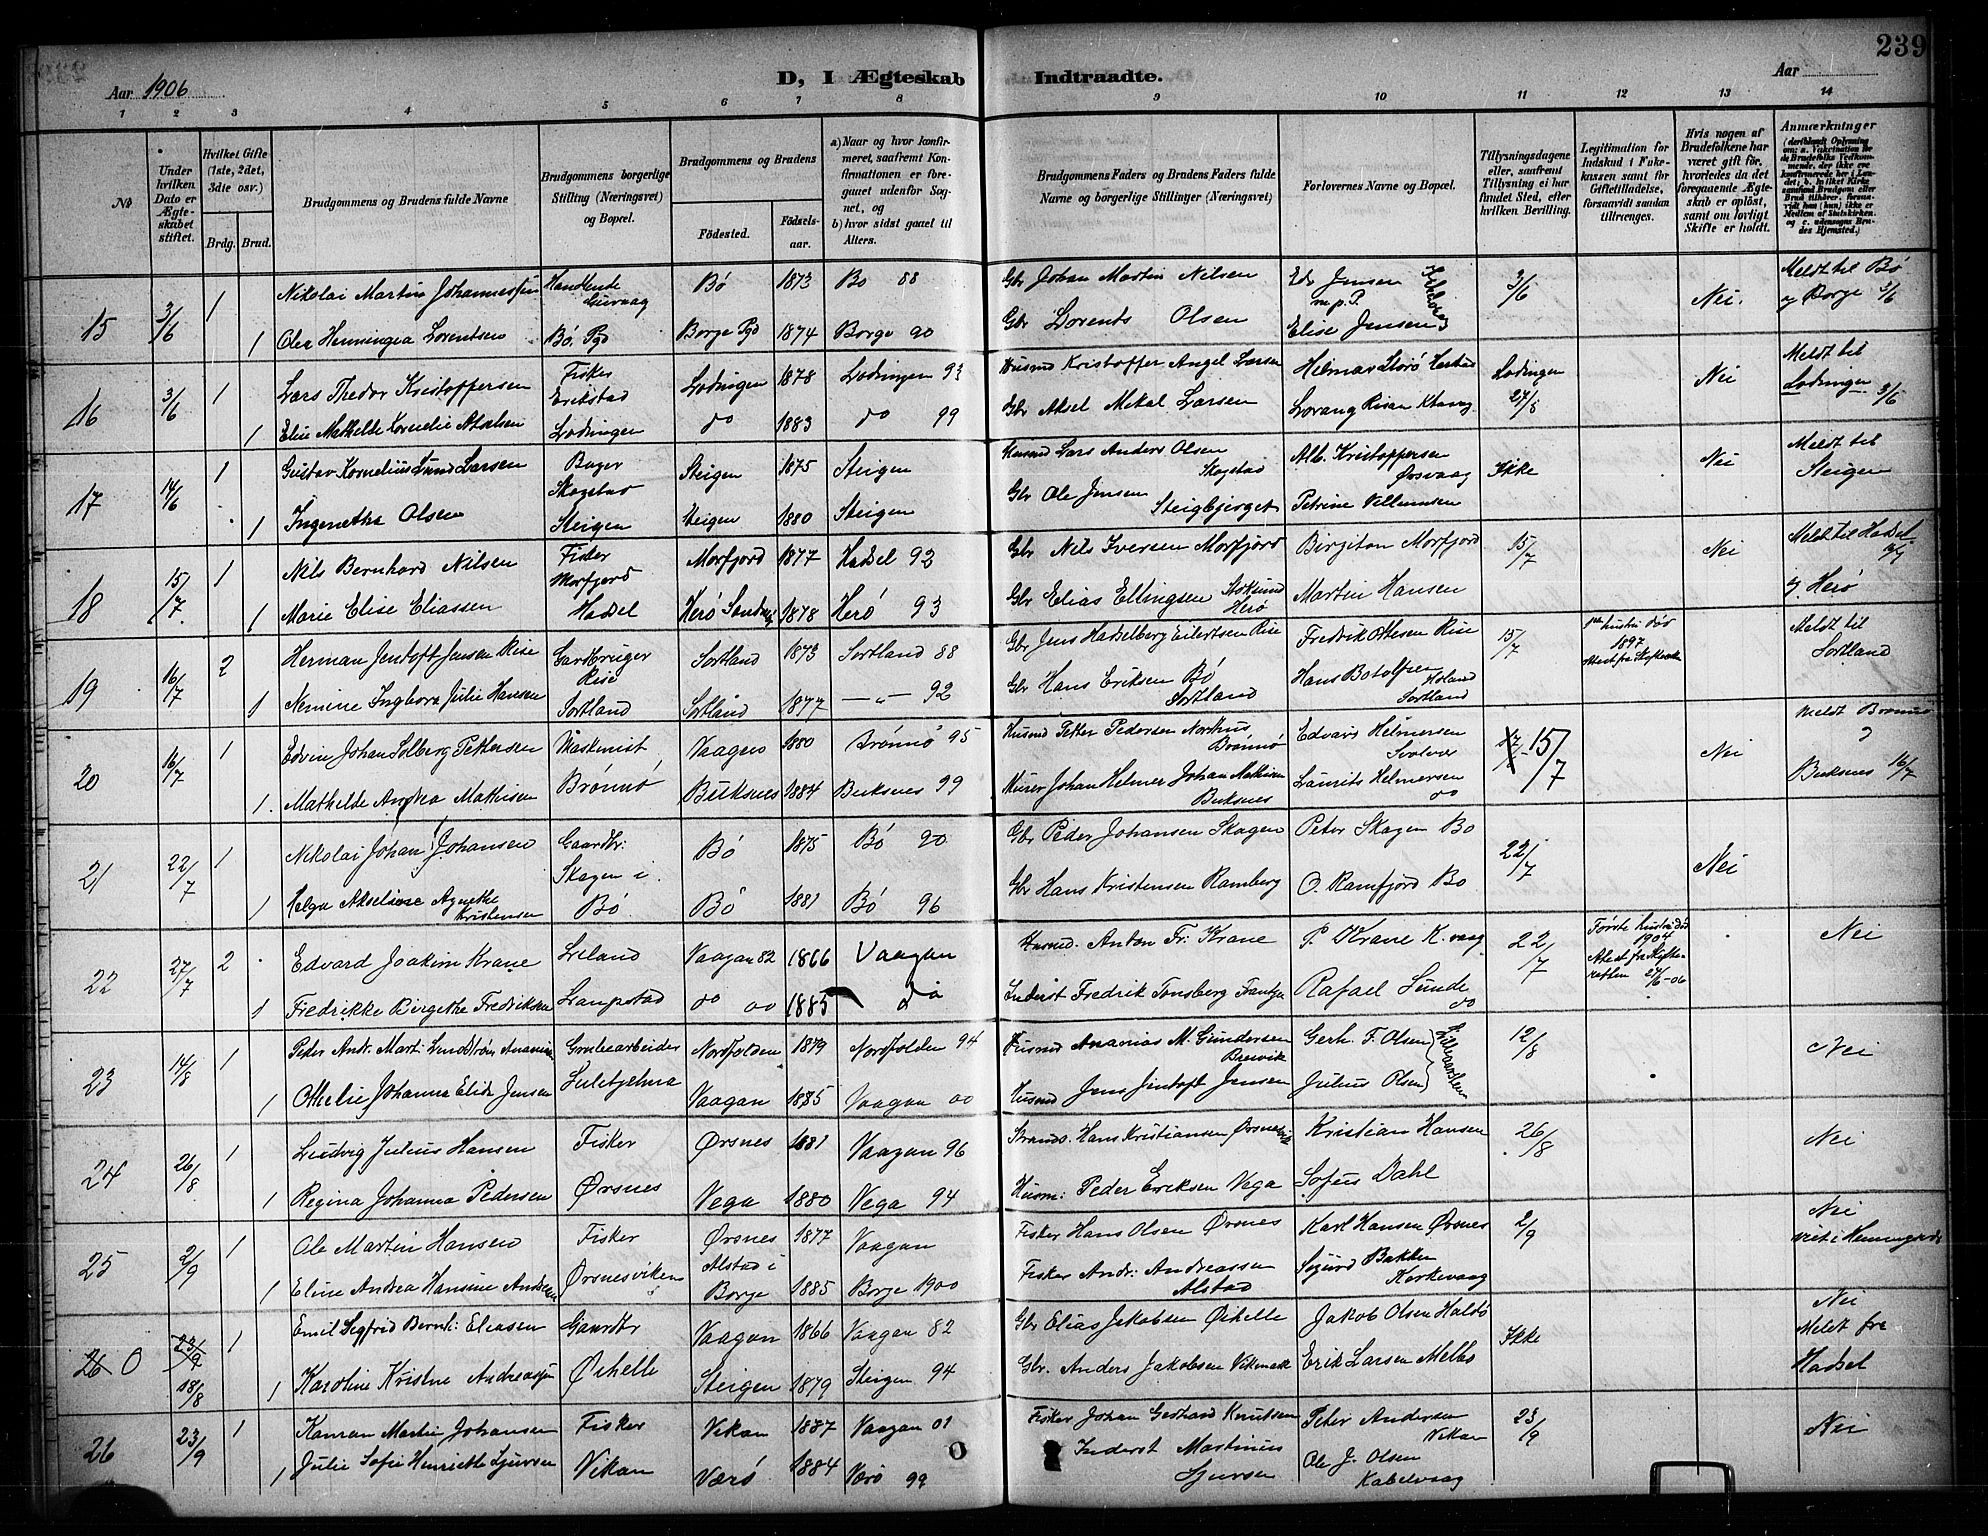 239
Aar 1906
D, I Ægteskab Indtraadte.
Aar
1 2 3 4 5 6 7 8 9 10 11 12 13 14
No
Under hvilken Dato er Ægteskabet stiftet.
Hvilket Gifte (1ste, 2det, 3die osv.)
Brdg. Brud.
Brudgommens og Brudens fulde Navne
Brudgommens borgerlige Stilling (Næringsvei) og Bopæl.
Brudgommens og Brudens
Fødested.
Fødselsaar.
a) Naar og hvor konfirmeret, saafremt Konfirmationen er foregaaet udenfor Sognet, og
b) hvor sidst gaaet til Alters.
Brudgommens Faders og Brudens Faders fulde Navne og borgerlige Stillinger (Næringsvei)
Forlovernes Navne og Bopæl.
Tillysningsdagene eller, saafremt Tillysning ei har fundet Sted, efter hvilken Bevilling.
Legitimation for Indskud i Enkekassen samt for Giftetilladelse, forsaavidt saadan tiltrænges.
Hvis nogen af Brudefolkene har været gift før, hvorledes da det foregaaende Ægteskab er opløst, samt om lovligt Skifte er holdt.
Anmærkninger
15 3/6 1 Nikolai Martin Johannessen Handlende Bø 1873 Bø 88 Gbr Johan Martin Nilsen Edv Jensen 3/6 Nei. Meldt til Bø
og Borge 3/6
1 Olea Henningea Lorentsen Bø. Pgd Borge Pgd 1874 Borge 90 Gbr Lorents Olsen Elise Jensen
16 3/6 1 Lars Thedor Kristoffersen Fisker Erikstad Lødingen 1878 Lødingen 93 Husmd Kristoffer Angel Larsen Lødingen 27/8 Nei Meldt til Lødingen 3/6
1 Elise Mathilde Kornelie Akselsen Lødingen do 1883 do 99 Gbr Aksel Mikal Larsen
17 14/6 1 Gustav Kornelius Lund Larsen Bager Skogstad Steigen 1875 Steigen Husmd Lars Anders Olsen Skogstad Alb. Kristoffersen Ørsvaag Ikke Nei Meldt til Steigen
1 Ingenetha Olsen Steigen Steigen 1880 Steigen Gbr Ole Jensen Steigbjerget Petrine Villumsen
18 15/7 1 Nils Bernhard Nilsen Fisker Morfjord Morfjord 1877 Hadsel 92 Gbr Nils Iversen Morfjord Birgitan Morfjord 15/7 Nei Meldt til Hadsel
1 Marie Elise Eliassen Hadsel Herø 1878 Herø 93 Gbr Elias Ellingsen Herø Martin Hansen og Herø
19 16/7 2 Herman Jentoft Jensen Rise Gardbruger Rise Sortland 1873 Sortland 88 Gbr Jens Hadselberg Eilertsen Rise Fredrik Ottesen Rise 15/7 hustru død 1897 Meldt til Sortland
1 Nemine Ingborg Julie Hansen Sortland Sortland 1877 — " — 92 Gbr Hans Eriksen Bø Sortland Hans Botolfsen Holand Sortland
20 16/7 1 Edvin Johan Solberg Pettersen Maskinist Vaagen 1880 Brønnø 95 Husmd Petter Pedersen Brønnø Edvard Helmersen Svolvær 15/7 Nei Meldt Brønnø
1. Mathilde Andrea Mathisen Brønnø Buksnes 1884 Buksnes 99 Murer Johan Helmer Johan Mathisen Buksnes Laurits Helmersen do Buksnes 16/7
21 22/7 1 Nikolai Johan Johansen Gaardbr: Skagen i Bø 1875 Bø 90 Gbr Peder Johansen Skagen Peter Skagen Bø 22/7 Nei
1 Helga Akseliane Agnethe Kristensen Bø Bø 1881 Bø 96 Gbr Hans Kristensen Ramberg O. Ramfjord Bø
22 27/7 2 Edvard Joakim Krane Lreland Vaagan 82 1866 Vaagan Husmd. Anton Fr: Krane P. Krane K. vaag 22/7 Første hustru død 1904 Attest fra Skifteretten 27/6-06 Nei
1 Fredrikke Birgithe Fredriksen Lampstad do do 1885 do Inderst Fredrik Tønsberg Rafael Sunde do
23 14/8 1 Peder Andr. Mart: Lindstrøm Grubearbeider Nordfolden 1879 Nordfolden 94 Husmd Ananias M. Gundersen Brevik Gerh. F. Olsen 12/8 Nei
1 Othelie Johanna Elida Jensen Sulitjelma Vaagan 1885 Vaagan 00 Husmd Jens Jentoft Jensen Julius Olsen
24 26/8 1 Ludvig Julius Hansen Fisker Ørsnes 1881 Vaagan 96 Strands. Hans Kristiansen Ørsnesvik Kristian Hansen 26/8 Nei
1 Regina Johanna Pedersen Ørsnes Vega 1880 Vega 94 Husm: Peder Eriksen Vega Sofus Dahl
25 2/9 1 Ole Martin Hansen Fisker Ørsnes 1877 Vaagan Fisker Hans Olsen Ørsnes Karl Hansen Ørsnes 2/9 Nei
viet i Henningsvær
1 Eline Andrea Hansine Andersen Ørsnesviken Alstad i Borge 1885 Borge 1900 Fisker Andr: Andreassen Alstad Sigurd Bakken Korkevaag
26 0 23/9 18/8 1 Emil Sigfrid Bernh: Eliasen Gaardbr Vaagan 1866 Vaagan 82 Gbr Elias Jakobsen Ørhelle Jakob Olsen Ikke Nei
Meldt fra Hadsel
1 Karoline Kristine Andreassen Ørhelle Steigen 1879 Steigen 94 Gbr. Anders Jakobsen Erik Larsen Melbo
26 23/9 1 Konran Martin Johansen Fisker Vikan 1887 Vaagan 01 Fisker Johan Gerhard Knutsen Peter Andersen Vikan 23/9 Nei
1 Julie Sofie Henriette Sjursen Vikan Værø 1884 Værø 99 Inderst Martinus Sjursen Ole J. Olsen Kabelvaag